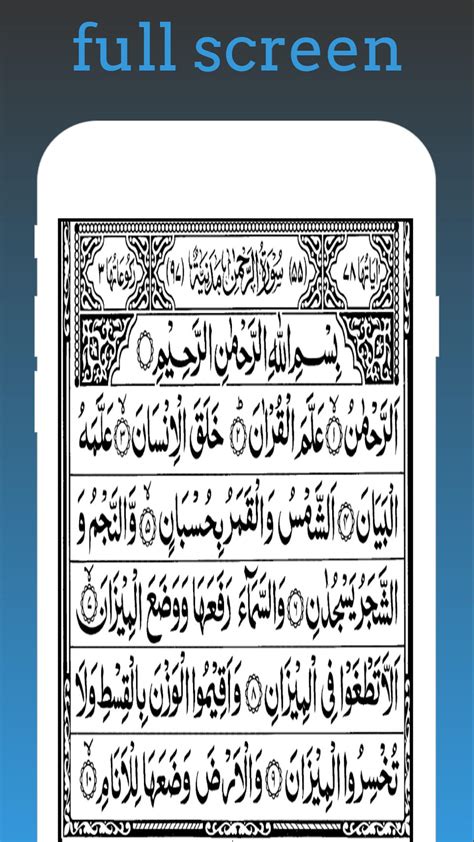 full screen
اٰيَاتُهَا ٧٨ (٥٥) سُوْرَةُ الرَّحْمٰنِ مَدَنِيَّةٌ (٩٧) رُكُوْعَاتُهَا ٣
بِسْمِ اللّٰهِ الرَّحْمٰنِ الرَّحِيْمِ
اَلرَّحْمٰنُ ۙ﴿١﴾ عَلَّمَ الْقُرْاٰنَ ؕ﴿٢﴾ خَلَقَ الْاِنْسَانَ ۙ﴿٣﴾ عَلَّمَهُ
الْبَيَانَ ﴿٤﴾ اَلشَّمْسُ وَالْقَمَرُ بِحُسْبَانٍ ۙ﴿٥﴾ وَّالنَّجْمُ وَ
الشَّجَرُ يَسْجُدٰنِ ﴿٦﴾ وَالسَّمَآءَ رَفَعَهَا وَوَضَعَ الْمِيْزَانَ ۙ﴿٧﴾
اَلَّا تَطْغَوْا فِى الْمِيْزَانِ ﴿٨﴾ وَاَقِيْمُوا الْوَزْنَ بِالْقِسْطِ وَلَا
تُخْسِرُوا الْمِيْزَانَ ﴿٩﴾ وَالْاَرْضَ وَضَعَهَا لِلْاَنَامِ ۙ﴿١٠﴾